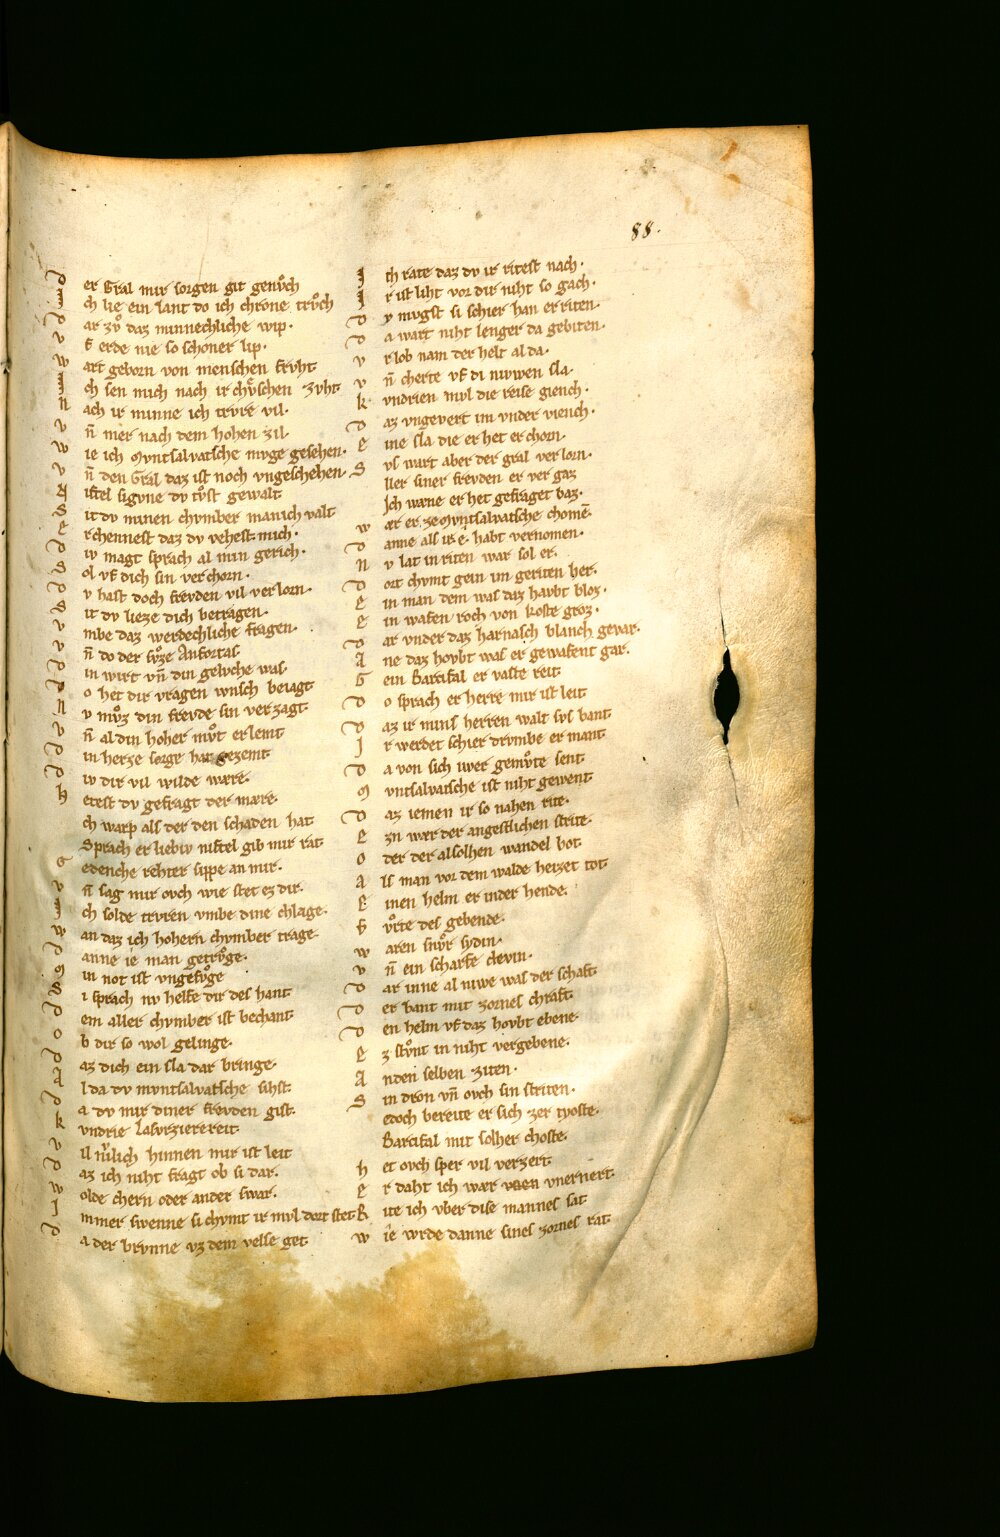 88.
D er Gral mir sorgen git genvͦch
I ch lie ein lant do ich chrone trvͦch
D ar zvͦ daz minnechliche wip.
v f erde nie so schoner lip.
w art geborn von menschen frvht
I ch sen mich nach ir chvͦschen zvht
N ach ir minne ich trvre vil.
v n̄ mer nach dem hohen zil
w ie ich Mvntsalvatsche mvge gesehen.
v n̄ den Gral daz ist noch vngeschehen.
N iftel sigvne dv tvͦst gewalt
S it dv minen chvmber manich valt
E rchennest daz dv vehest mich.
D iv magt sprach al min gerich.
S ol vf dich sin verchorn.
D v hast doch frevden vil verlorn.
S it dv lieze dich betragen.
v mbe daz werdechliche fragen.
v n̄ do der svͦze Anfortas
D in wirt vn̄ din gelvche was
D o het dir vragen wnsch beiagt
N v mvͦz din frevde sin verzagt
v n̄ al din hoher mvͦt erlemt
D in herze sorge hat gezemt
D iv dir vil wilde wære.
H etest dv gefragt der mære.
ch warp als der den schaden hat
Sprach er liebiv niftel gib mir rat
G edenche rehter sippe an mir.
v n̄ sag mir ovch wie stet ez dir.
I ch solde trvren vmbe dine chlage.
w an daz ich hohern chvmber trage.
D anne ie man getrvͦge.
D in not ist vngefvͦge
S i sprach nv helfe dir des hant
D em aller chvmber ist bechant
O b dir so wol gelinge.
D az dich ein sla dar bringe.
A l da dv mvntsalvatsche sihst
D a dv mir diner frevden gist.
K vndrie Lasvrziere reit
v il niwlich hinnen mir ist leit
D az ich niht fragt ob si dar.
w olde chern oder ander swar.
I mmer swenne si chvmt ir mvl dort stet
D a der brvnne vz dem velse get
I ch rate daz dv ir ritest nach.
I r ist liht vor dir niht so gach.
D v mvgst si schier han erriten.
D a wart niht lenger da gebiten.
v rlob nam der helt al da.
v n̄ cherte vf di niwen sla.
K vndrien mvl die reise giench.
D az vngevert im vnder viench.
E ine sla die er het erchorn.
S vs wart aber der gral verlorn.
ller siner frevden er vergaz
Ich wæne er het gefraget baz.
w ær er ze Mvntsalvatsche chomē.
D anne als ir e. habt vernomen.
N v lat in riten war sol er.
D ort chvmt gein im geriten her.
E in man dem was daz havbt bloz.
E in wafen roch von koste groz.
D ar vnder daz harnasch blanch gevar.
A ne daz hovbt was er gewafent gar.
G ein Barcifal er vaste reit
D o sprach er herre mir ist leit
D az ir mins herren walt svs bant
I r werdet schier drvmbe ermant
D a von sich iwer gemvͦte sent
M vntsalvatsche ist niht gewent
D az iemen ir so nahen rite.
E zn wær der angestlichen strite.
O der der alsolhen wandel bot
A ls man vor dem walde heizet tot
E inen helm er inder hende.
F vͦrte des gebende.
w aren snvͦr sydin.
v n̄ ein scharfe clevin.
D ar inne al niwe was der schaft
D er bant mit zornes chraft.
D en helm vf daz hovbt ebene.
E z stvͦnt in niht vergebene.
A nden selben ziten.
S in dron vn̄ ovch sin striten.
edoch bereite er sich zer tyoste.
Barcifal mit solher choste.
H et ovch sper vil verzert.
E r daht ich wær vnernert.
R ite ich vber dise mannes sat
w ie wrde danne sines zornes rat